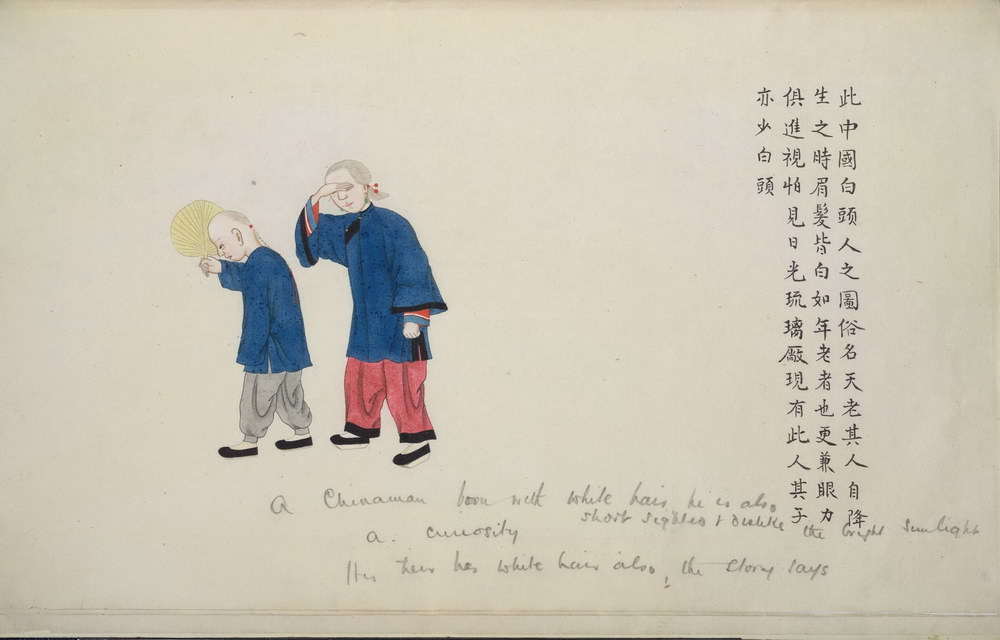 此中國白頭人之圖俗名天老其人自降
生之時眉髮皆白如年老者也更兼眼力
俱進視怕見日光琉璃廠現有此人其子
亦少白頭
A Chinaman born with white hair, he is also
short sighted & dislike the bright sunlight
a curiosity
His heir has white hair also, the story says